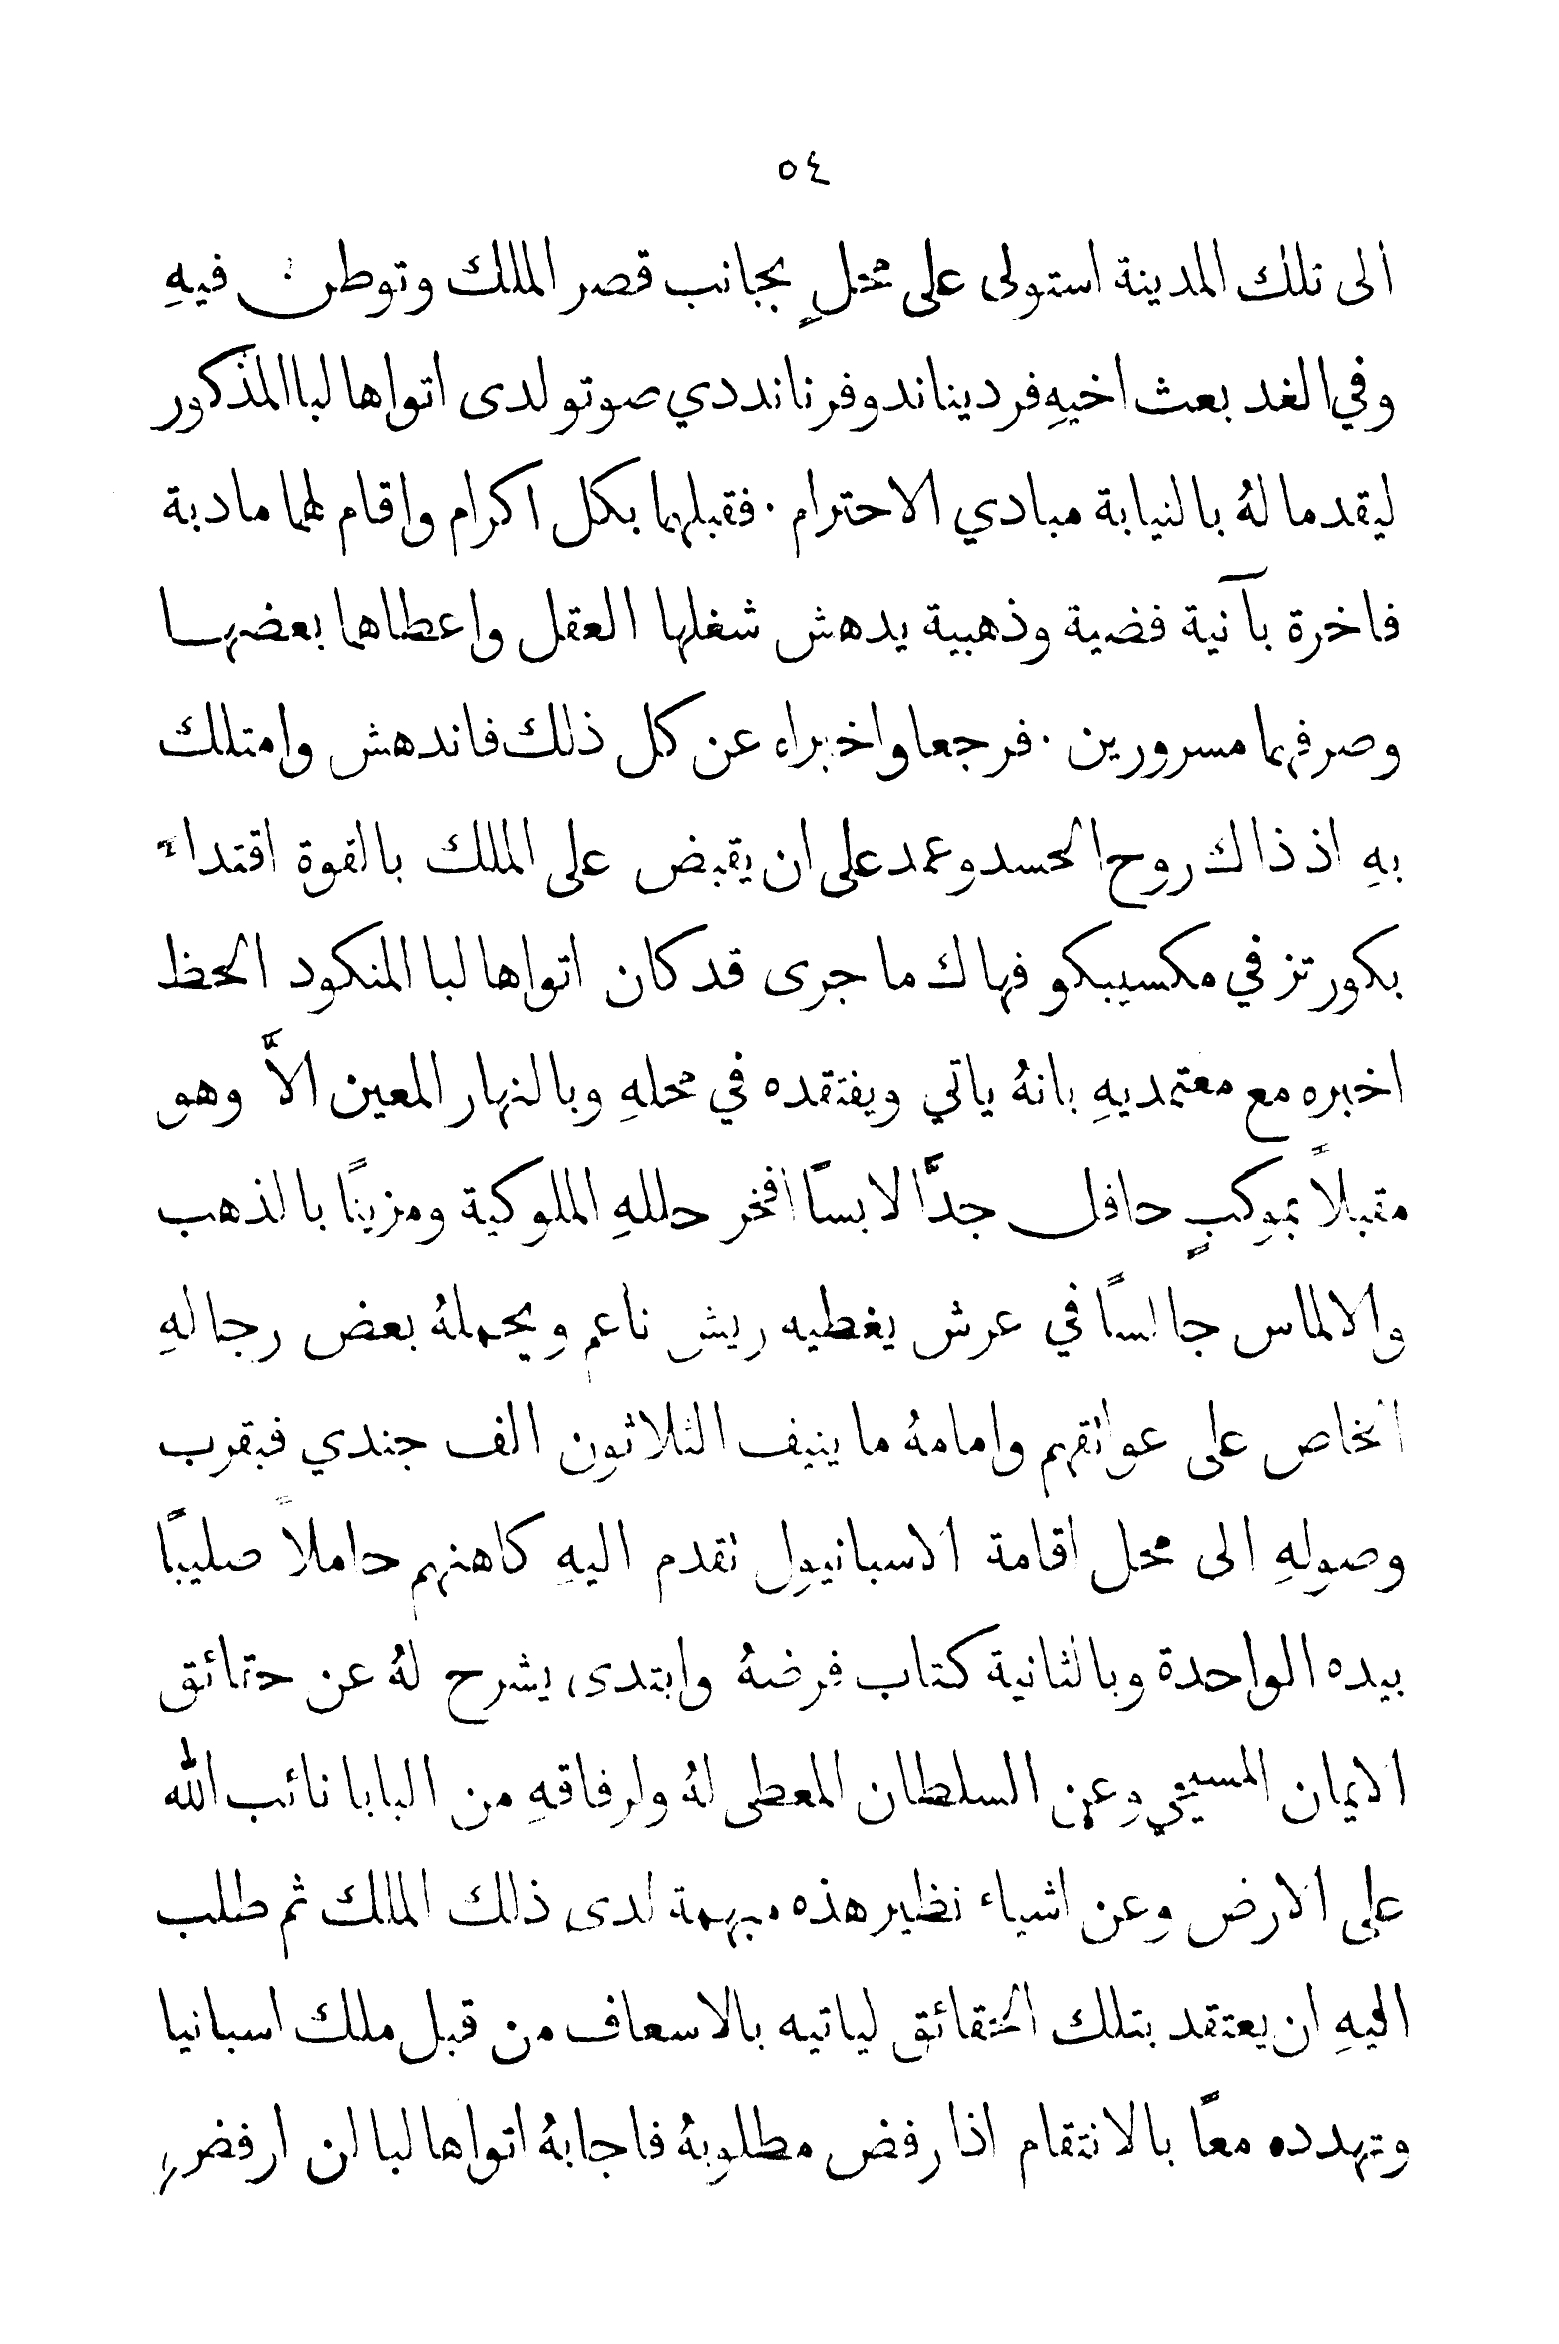 ٥٤
الى تلك المدينة استولى على محلٍ بجانب قصر الملك وتوطن فيهِ
وفي الغد بعث اخيهِ فرديناندو فرناند دي صوتو لدى اتواهالبا المذكور
ليقدما لهُ بالنيابة مبادي الاحترام . فقبلهما بكل اكرام واقام لهما مادبة
فاخرة بآنية فضية وذهبية يدهش شغلها العقل واعطاهما بعضها
وصرفهما مسرورين . فرجعا واخبراه عن كل ذلك فاندهش وامتلك
بهِ اذ ذاك روح الحسد وعمد على ان يقبض على الملك بالقوة اقتداءً
بكورتز في مكسيبكو فهاك ما جرى قد كان اتواهالبا المنكود الحظ
اخبره مع معتمديهِ بانهُ ياتي ويفتقده في محلهِ وبالنهار المعين الاَّ وهو
مقبلاً بموكبٍ حافل جدَّا لابسًا افخر حللهِ الملوكية ومزينًا بالذهب
والالماس جالسًا في عرش يغطيه ريش ناعم ويحملهُ بعض رجالهِ
الخاص على عواتقهم وامامهُ ما ينيف الثلاثون الف جندي فبقرب
وصولهِ الى محل اقامة الاسبانيول تقدم اليهِ كاهنهم حاملاً صليبًا
بيده الواحدة وبالثانية كتاب فرضهُ وابتدى يشرح لهُ عن حقائق
الايمان المسيحي وعن السلطان المعطى لهُ ولرفاقهِ من البابا نائب الله
على الارض وعن اشياء نظير هذه مبهمة لدى ذلك الملك ثم طلب
اليهِ ان يعتقد بتلك الحقائق لياتيه بالاسعاف من قبل ملك اسبانيا
وتهدده معًا بالانتقام اذا رفض مطلوبهُ فاجابهُ اتواهالبا لن ارفض